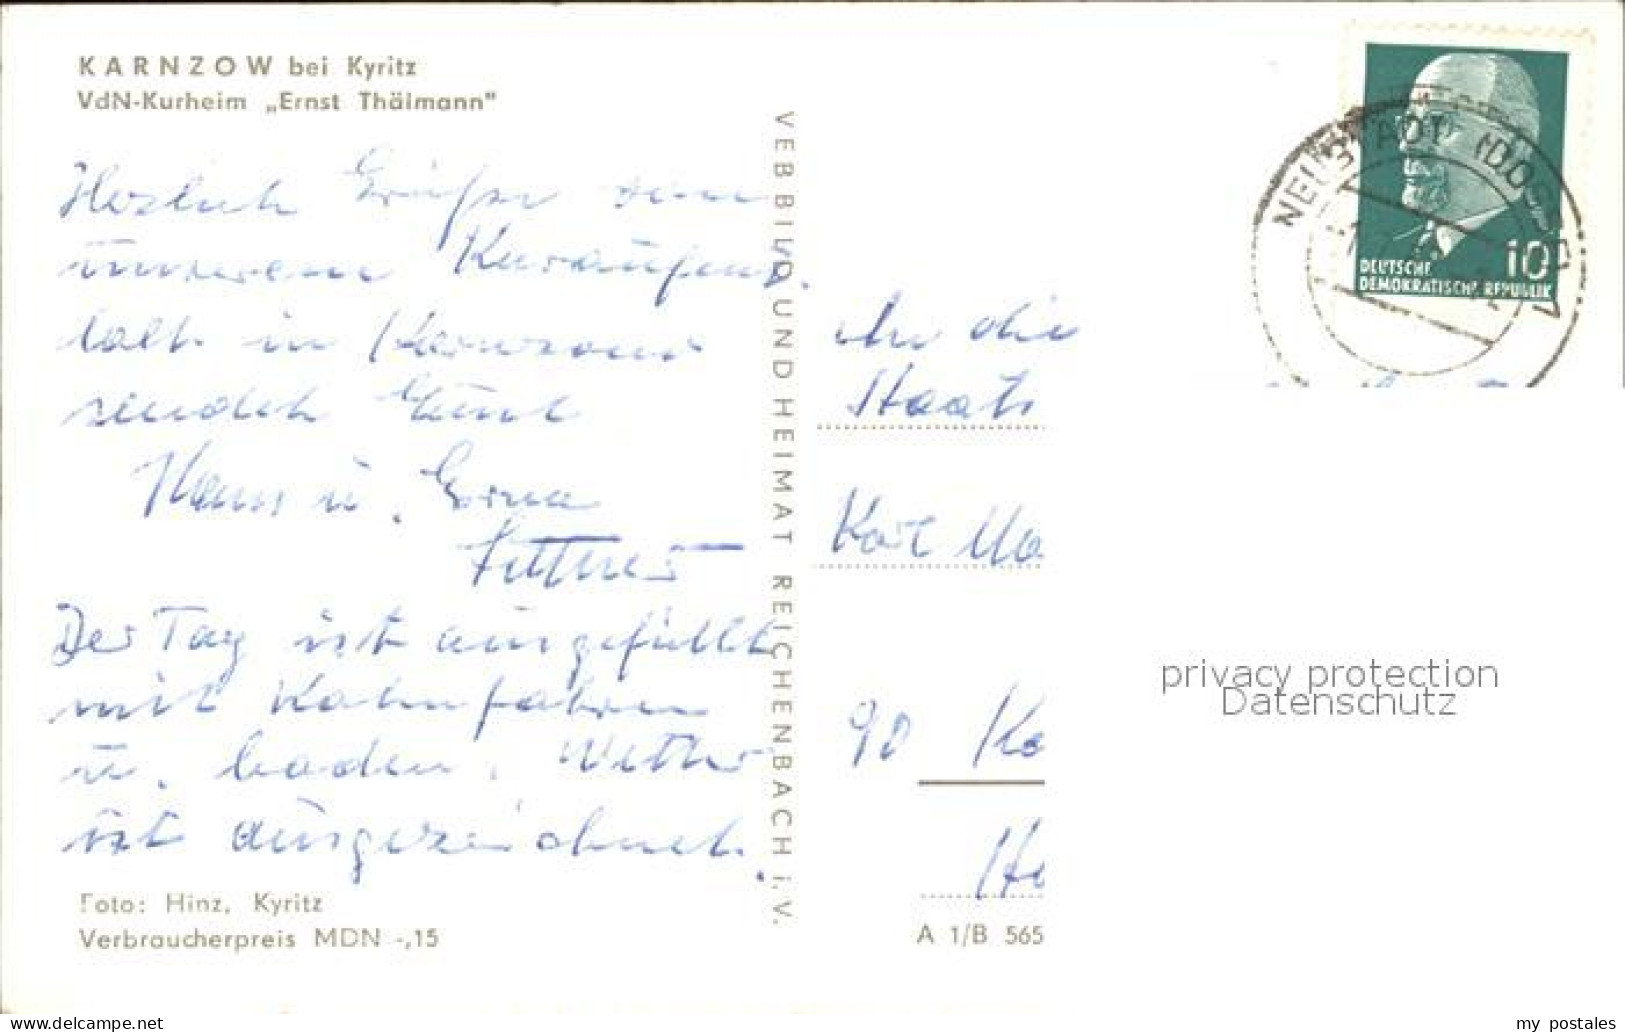 KARNZOW bei Kyritz
VdN-Kurheim „Ernst Thälmann"
Herzlich Grüße von
unserem Kuraufent
halt in Karnzow
sendet Euch
Hans u. Erna
Der Tag ist ausgefüllt
mit Kahnfahren
u. baden. Wetter
ist ausgezeichnet.
Foto: Hinz, Kyritz
Verbraucherpreis MDN -,15
VEB BILD UND HEIMAT REICHENBACH i. V.
NEUSTADT (DOSSE)
10
DEUTSCHE
DEMOKRATISCHE REPUBLIK
An die
Staats
Karl Ma
90 Ka
A 1/B 565
privacy protection
Datenschutz
www.delcampe.net
my_postales